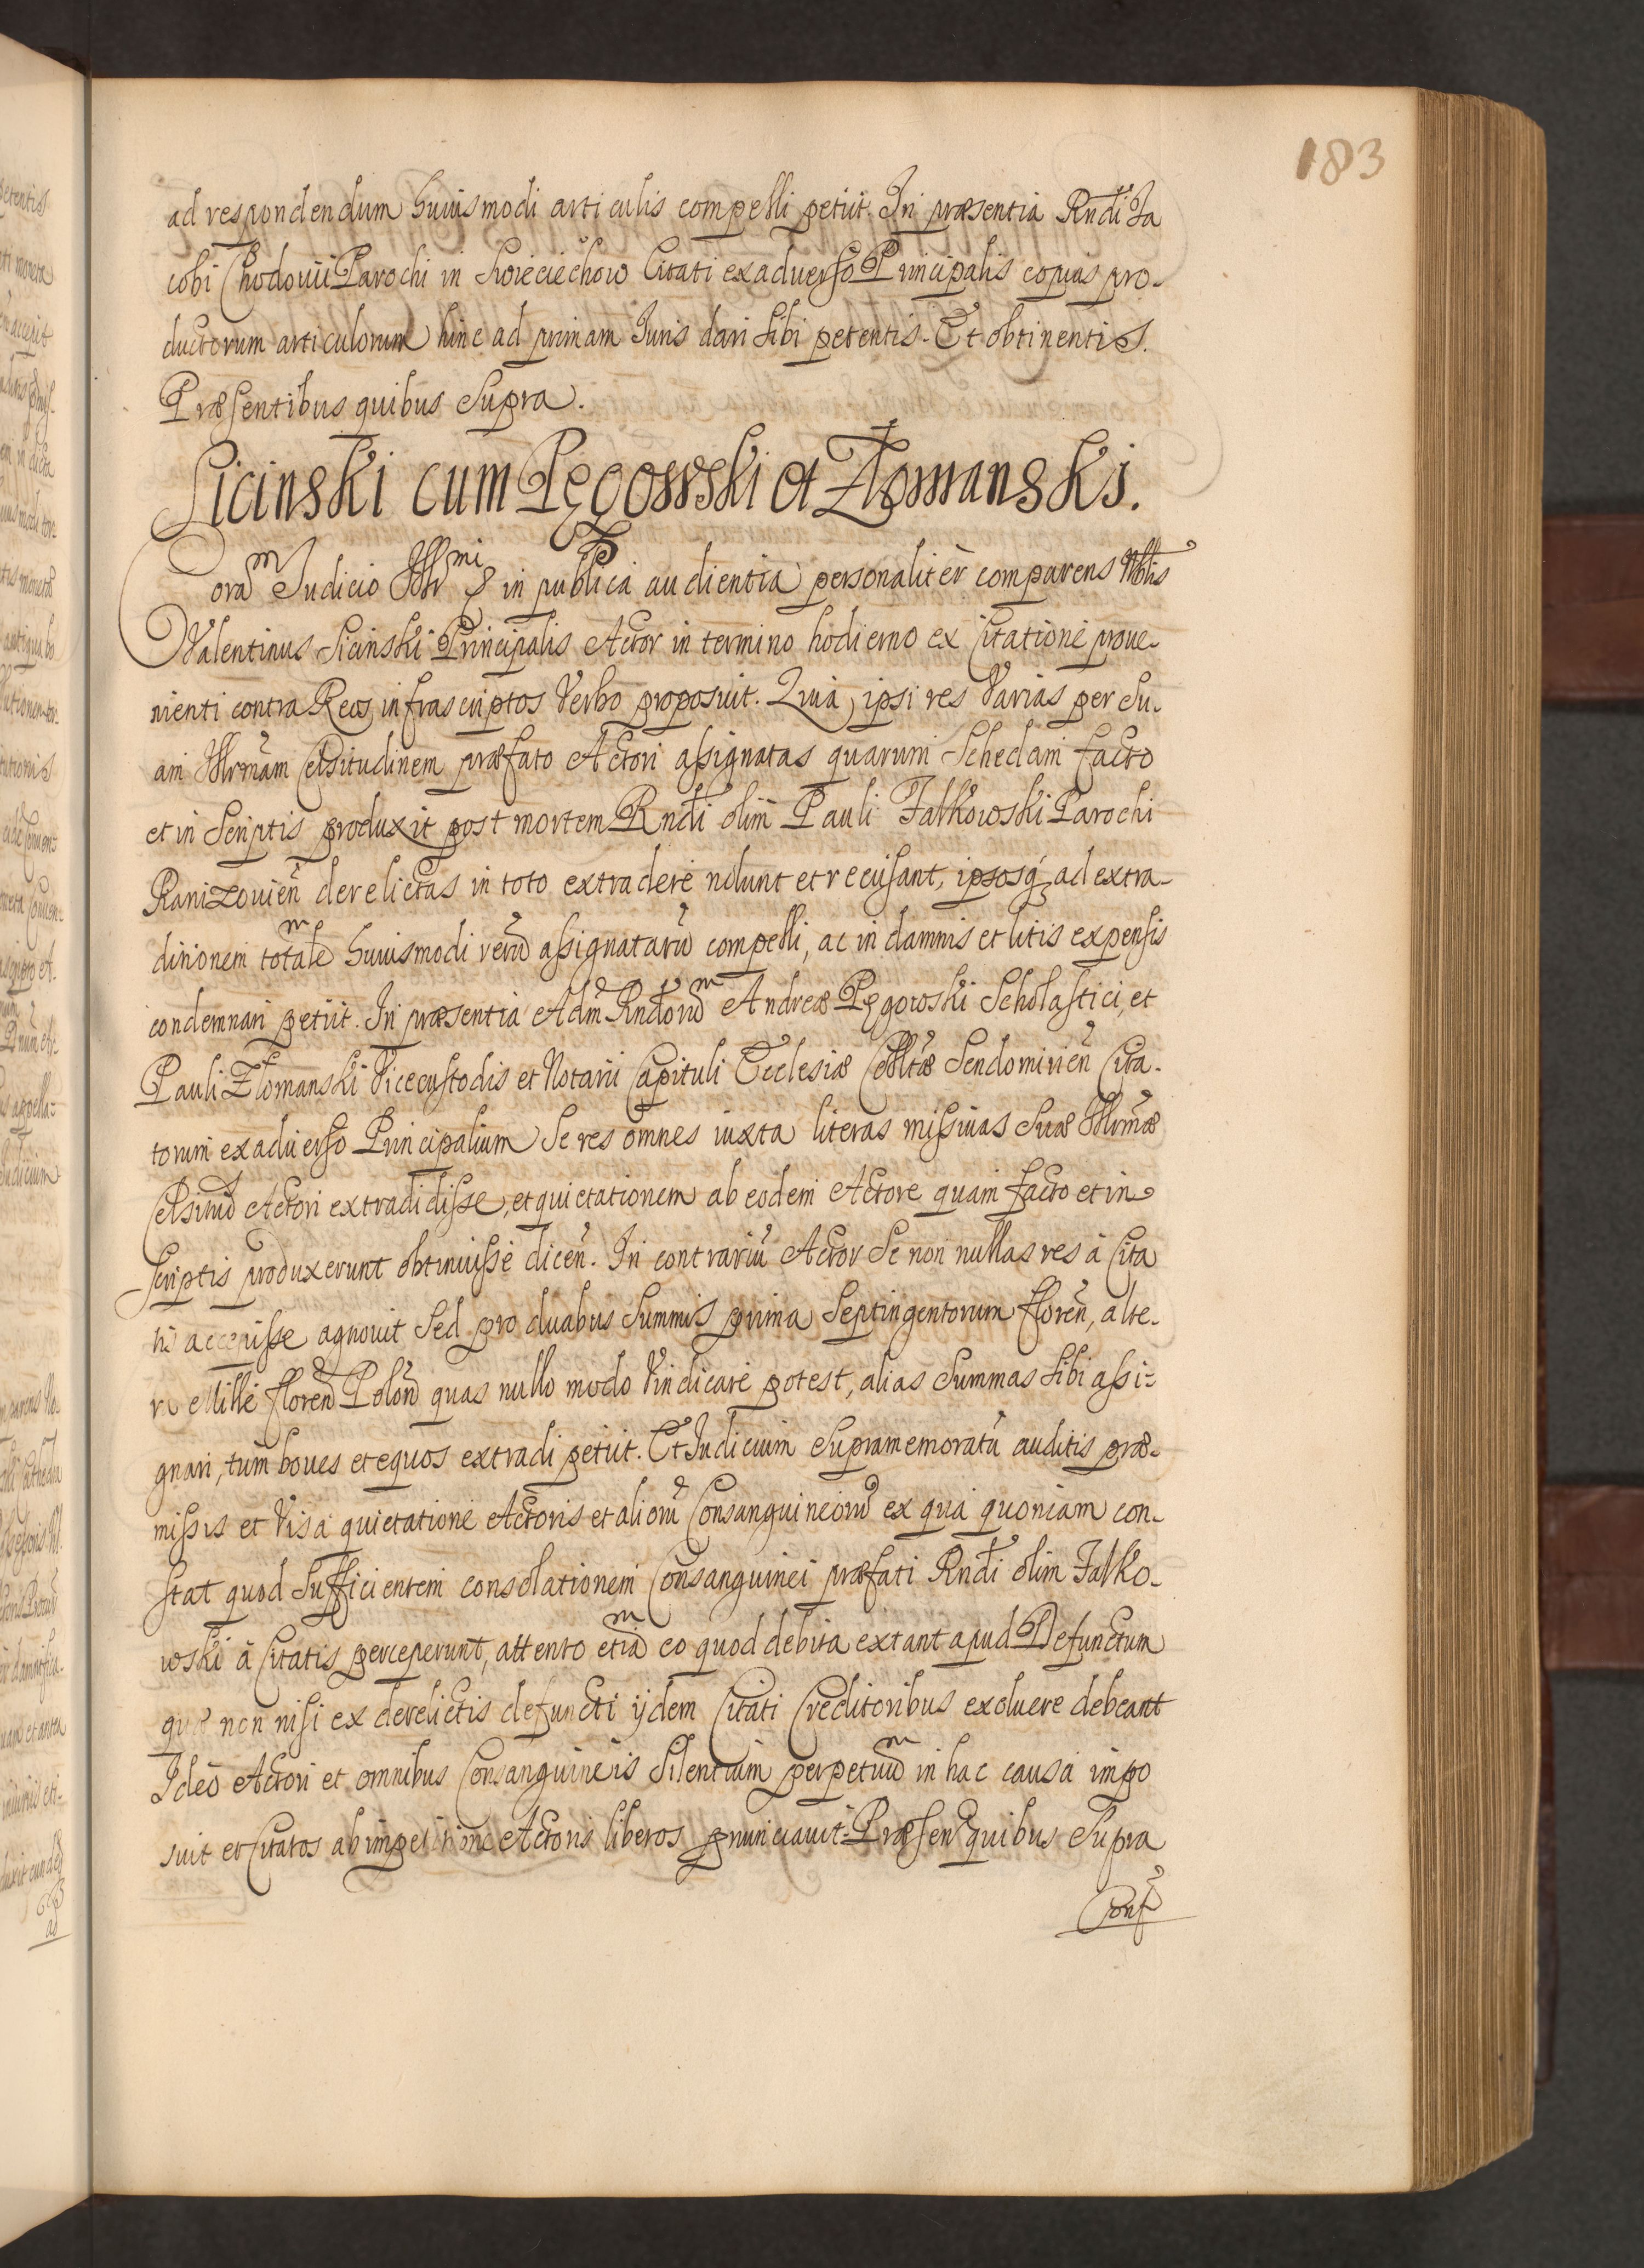 183
ad respondendum huiusmodi articulis compelli petiit. In præsentia Rndi Ja
cobi Chodouii Parochi in Swieciechow Citati ex aduerso Principalis copias pro-
ductorum articulorum hinc ad primam Iuris dari sibi petentis. Et obtinentis.
Præsentibus quibus supra.
Sicinski cum Pęgowski et Złomanski.
Coram Iudicio Illmi & in publica audientia personalitèr comparens Nblis
Valentinus Sicinski Principalis Actor in termino hodierno ex Citatione proue-
nienti contra Reos infrascriptos Verbo proposuit. Quia, ipsi res Varias per Su-
am Illrmam Celsitudinem præfato Actori assignatas quarum Schedam facto
et in Scriptis produxit post mortem Rndi olim Pauli Falkowski Parochi
Ranizouien derelictas in toto extradere nolunt et recusant, ipsosq ad extra-
ditionem totalem huiusmodi rerum assignatarum compelli, ac in damnis et litis expensis
condemnari petiit. In præsentia Adm Rndorum Andreæ Pęgowski Scholastici, et
Pauli Złomanski Vicecustodis et Notarii Capituli Ecclesiæ Colltæ Sendomirien Cita-
torum ex aduerso Principalium Se res omnes iuxta literas missiuas Suæ Illrmæ
Celsitud Actori extradidisse, et quietationem ab eodem Actore quam facto et in
scriptis produxerunt obtinuisse dicen. In contrariu Actor Se non nullas res à Cita
tis accepisse agnouit Sed pro duabus Summis prima Septingentorum floren, alte-
ra Mille floren Polon quas nullo modo Vindicare potest, alias Summas sibi assi-
gnari, tum boues et equos extradi petiit. Et Iudicium Supramemoratu auditis præ-
missis et Visa quietatione Actoris et alioru Consanguineoru ex qua quoniam con-
stat quod Sufficientem consolationem Consanguinei præfati Rndi olim Falko-
wski à Citatis perceperunt, attento etiam eo quod debita extant apud Defunctum
quæ non nisi ex derelictis defuncti ijdem Citati Creditoribus exoluere debeant
Ideò Actori et omnibus Consanguineis Silentium perpetuum in hac causa impo
suit et Citatos ab impetitione Actoris liberos pnunciauit. Præsen quibus Supra
Conf